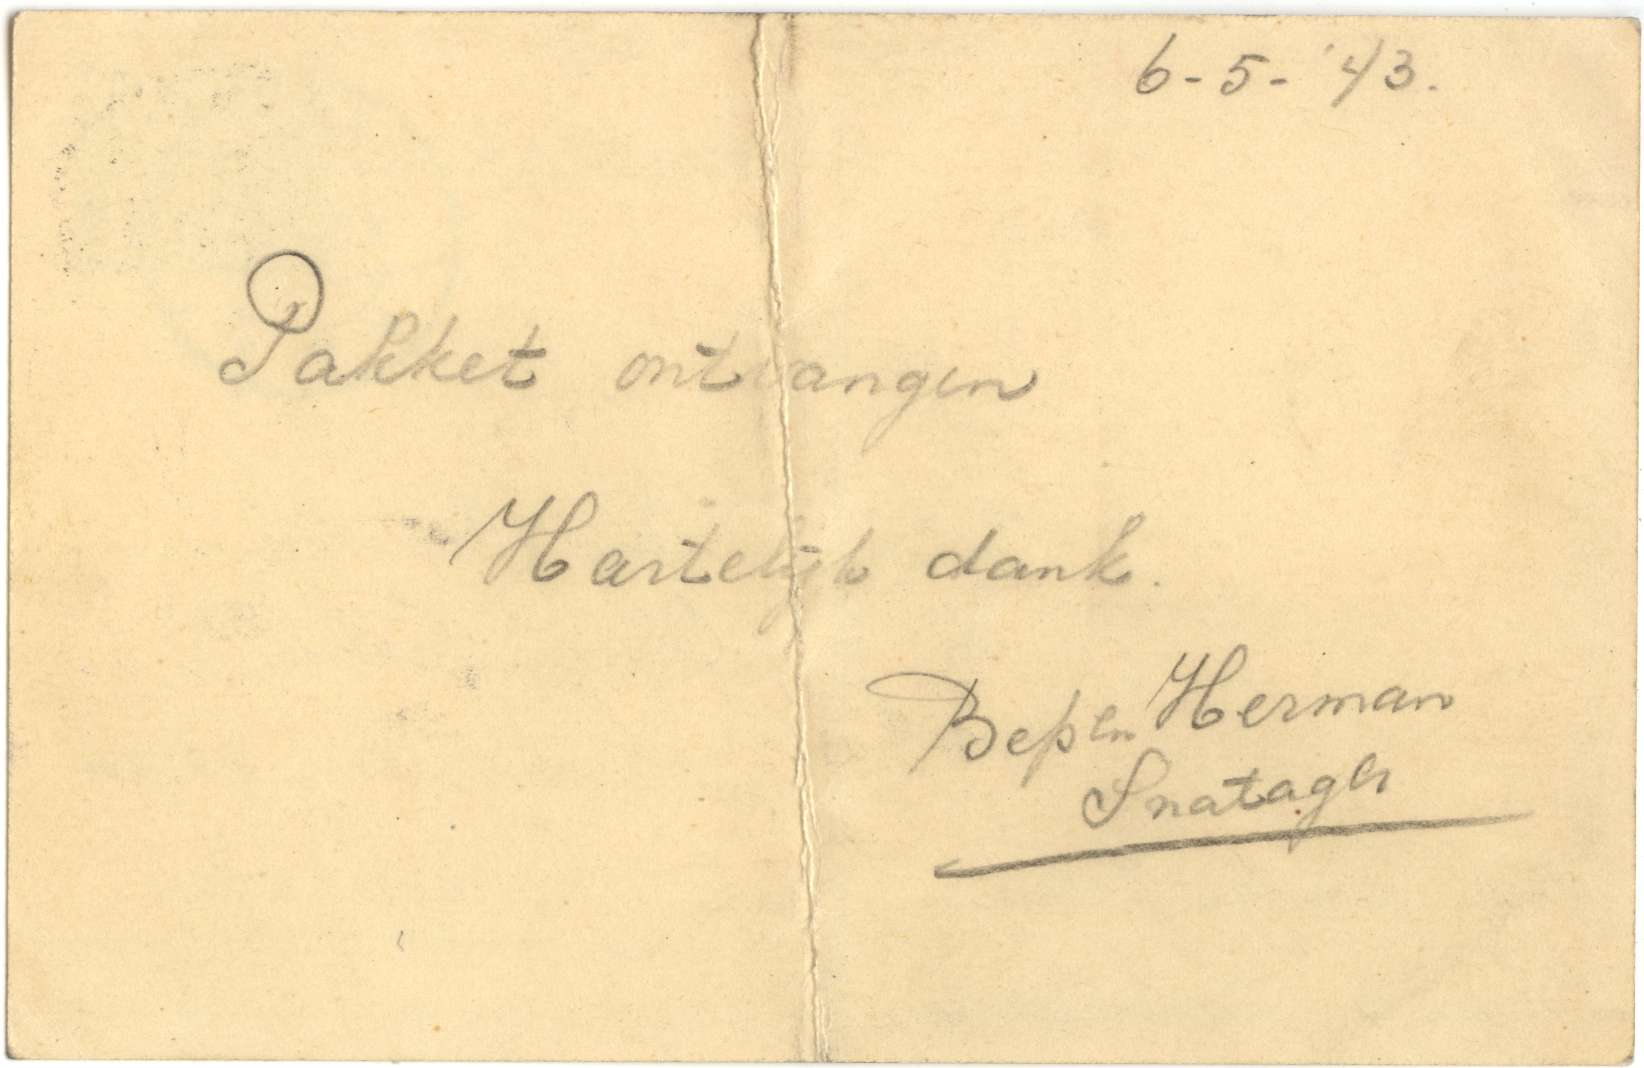 6-5-'43.
Pakket ontvangen
Hartelijk dank.
Bep en Herman